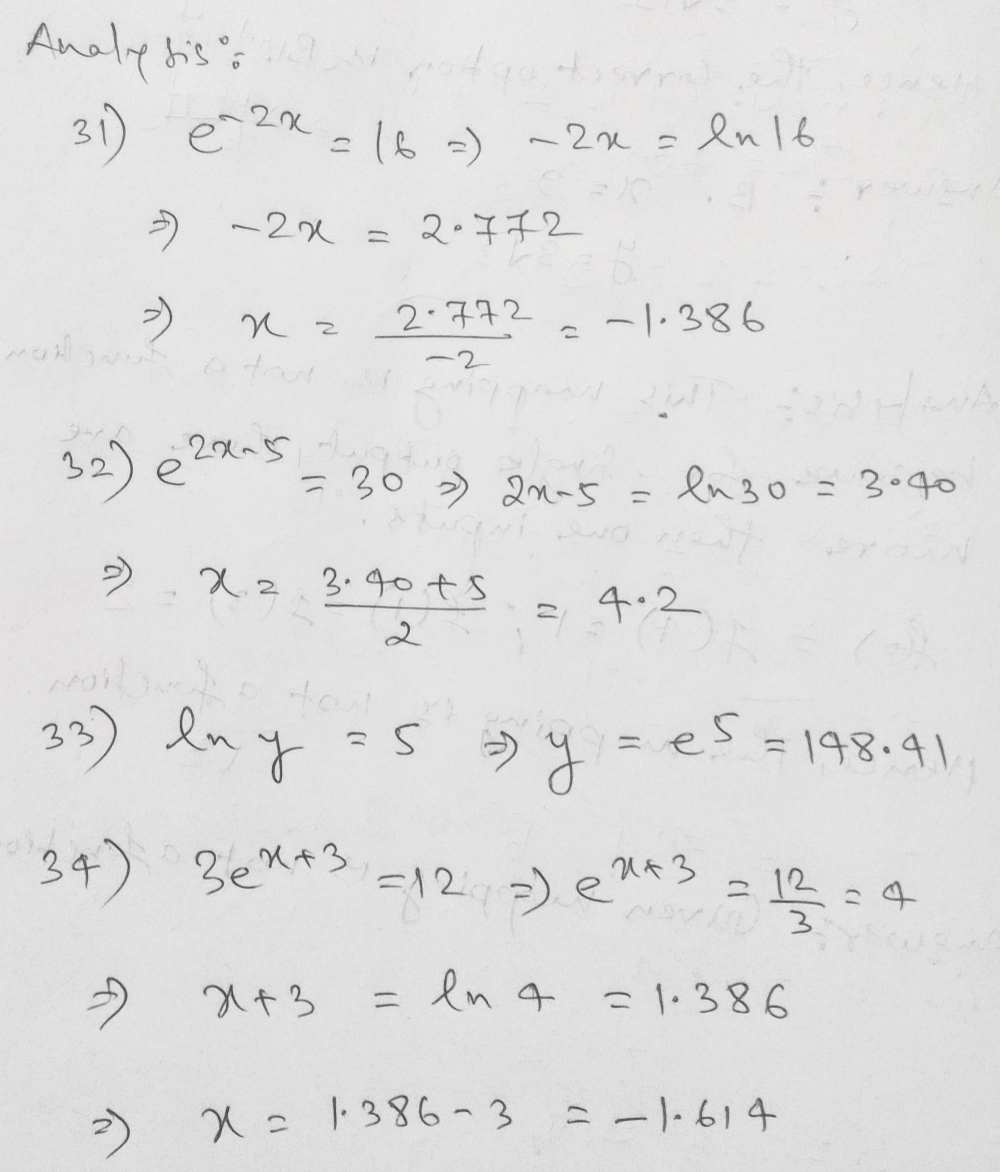 Analysis:
31) e^{-2x} = 16 ⇒ -2x = ln 16
⇒ -2x = 2.772
⇒ x = \frac{2.772}{-2} = -1.386
32) e^{2x-5} = 30 ⇒ 2x-5 = ln 30 = 3.40
⇒ x = \frac{3.40+5}{2} = 4.2
33) ln y = 5 ⇒ y = e^5 = 148.41
34) 3e^{x+3} = 12 ⇒ e^{x+3} = \frac{12}{3} = 4
⇒ x+3 = ln 4 = 1.386
⇒ x = 1.386-3 = -1.614